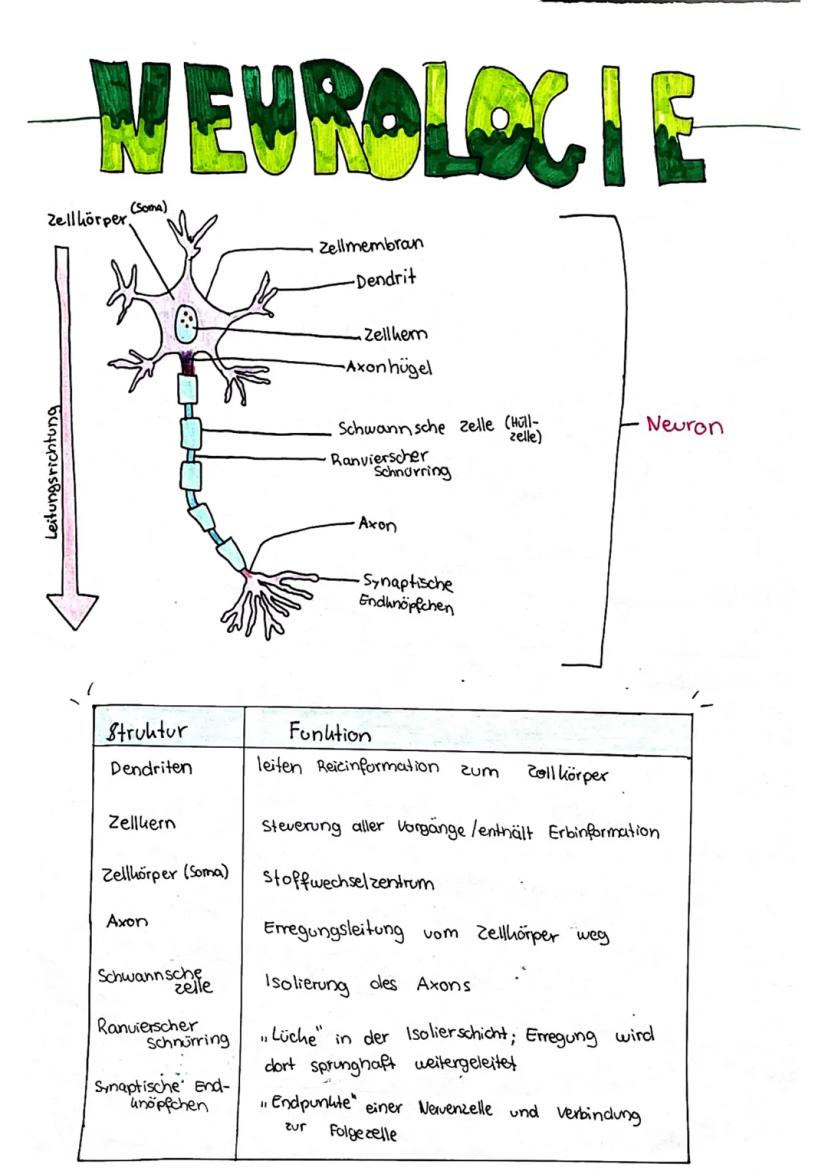 NEUROLOGIE
Zellkörper (Soma)
Zellmembran
Dendrit
Zellkern
Axonhügel
Schwannsche Zelle (Hüll-
zelle)
Ranvierscher
Schnürring
Axon
Synaptische
Endknöpfchen
Leitungsrichtung
Neuron
Struktur Funktion
Dendriten leiten Reizinformation zum Zellkörper
Zellkern Steuerung aller Vorgänge/enthält Erbinformation
Zellkörper (Soma) Stoffwechselzentrum
Axon Erregungsleitung vom Zellkörper weg
Schwannsche
Zelle Isolierung des Axons
Ranvierscher
Schnürring „Lücke" in der Isolierschicht; Erregung wird
dort sprunghaft weitergeleitet
Synaptische End-
knöpfchen „Endpunkte" einer Nervenzelle und Verbindung
zur Folgezelle